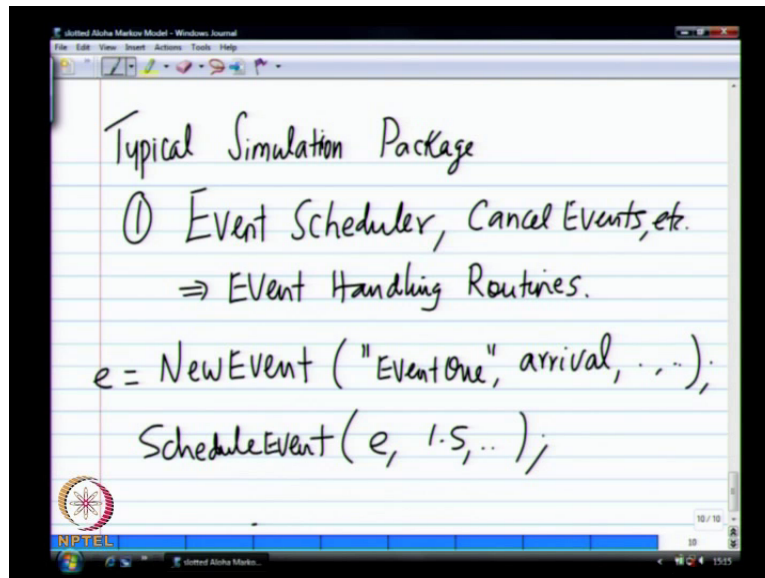 slotted Aloha Markov Model - Windows Journal
File Edit View Insert Actions Tools Help
Typical Simulation Package
① Event Scheduler, Cancel Events, etc.
⇒ Event Handling Routines.
e = NewEvent ("EventOne", arrival, ...);
ScheduleEvent (e, 1.5, ..);
10 / 10
10
NPTEL
slotted Aloha Marko...
15:15